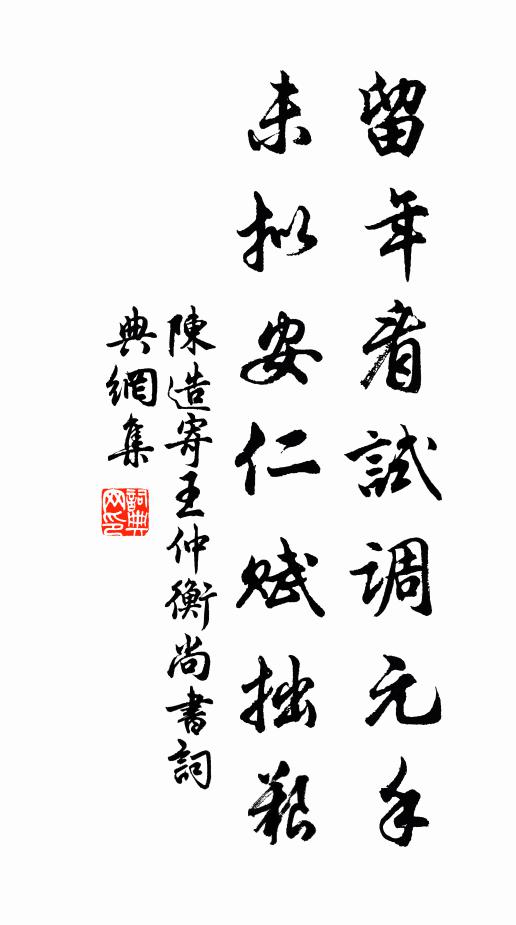 留年看試调元手
未拟安仁赋拙艱
陳造寄王仲衡尚書詞
典網集
詞典网印